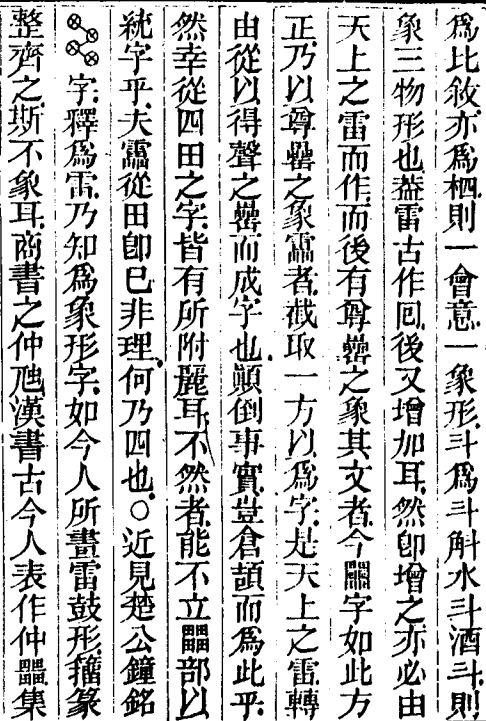 爲比敘亦爲栖則一會意一象形斗爲斗斛水斗酒斗則
象三物形也葢雷古作回後又增加耳然卽增之亦必由
天上之雷而作而後有尊罍之象其文者今畾字如此方
正乃以尊罍之象靁者截取一方以爲字是天上之雷轉
由從以得聲之罍而成字也顚倒事實豈倉頡而爲此乎
然幸從四田之字皆有所附麗耳不然者能不立𤳳部以
統字乎夫靁從田卽已非理何乃四也○近見楚公鐘銘
字釋爲雷乃知爲象形字如今人所畫雷鼓形籀篆
整齊之斯不象耳商書之仲虺漢書古今人表作仲𤳳集